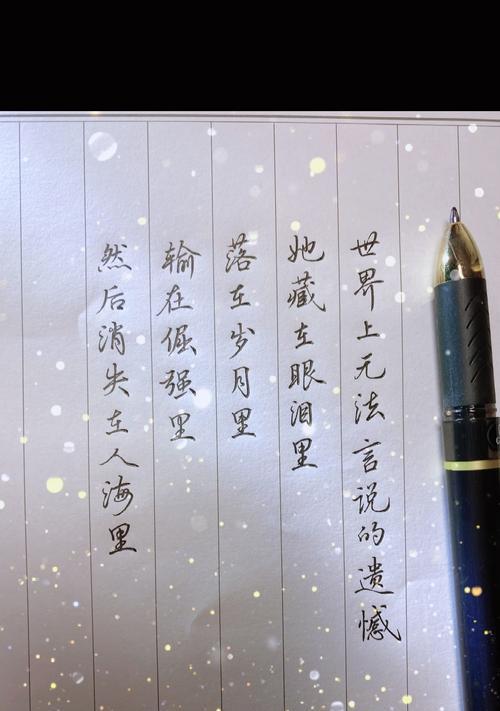 世界上无法言说的遗憾
她藏在眼泪里
落在岁月里
输在倔强里
然后消失在人海里